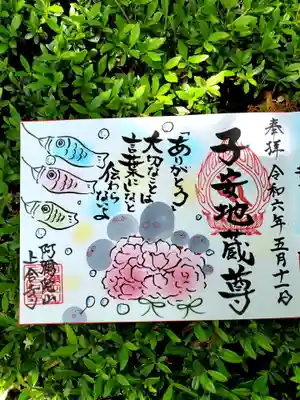 奉拝 令和六年五月十一日
子安地蔵尊
「ありがとう」
大切なことは
言葉にしないと
伝わらないよ
阿弥陀山
上念寺